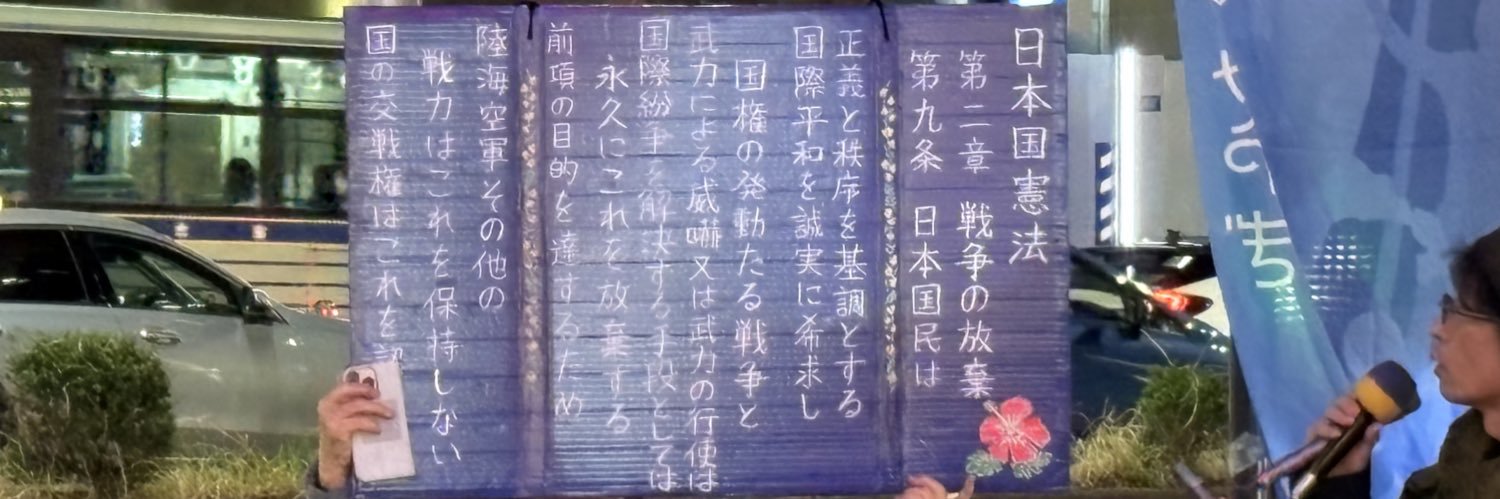 日本国憲法
第二章 戦争の放棄
第九条 日本国民は
正義と秩序を基調とする
国際平和を誠実に希求し
国権の発動たる戦争と
武力による威嚇又は武力の行使は
国際紛争を解決する手段としては
永久にこれを放棄する
前項の目的を達するため
陸海空軍その他の
戦力はこれを保持しない
国の交戦権はこれを